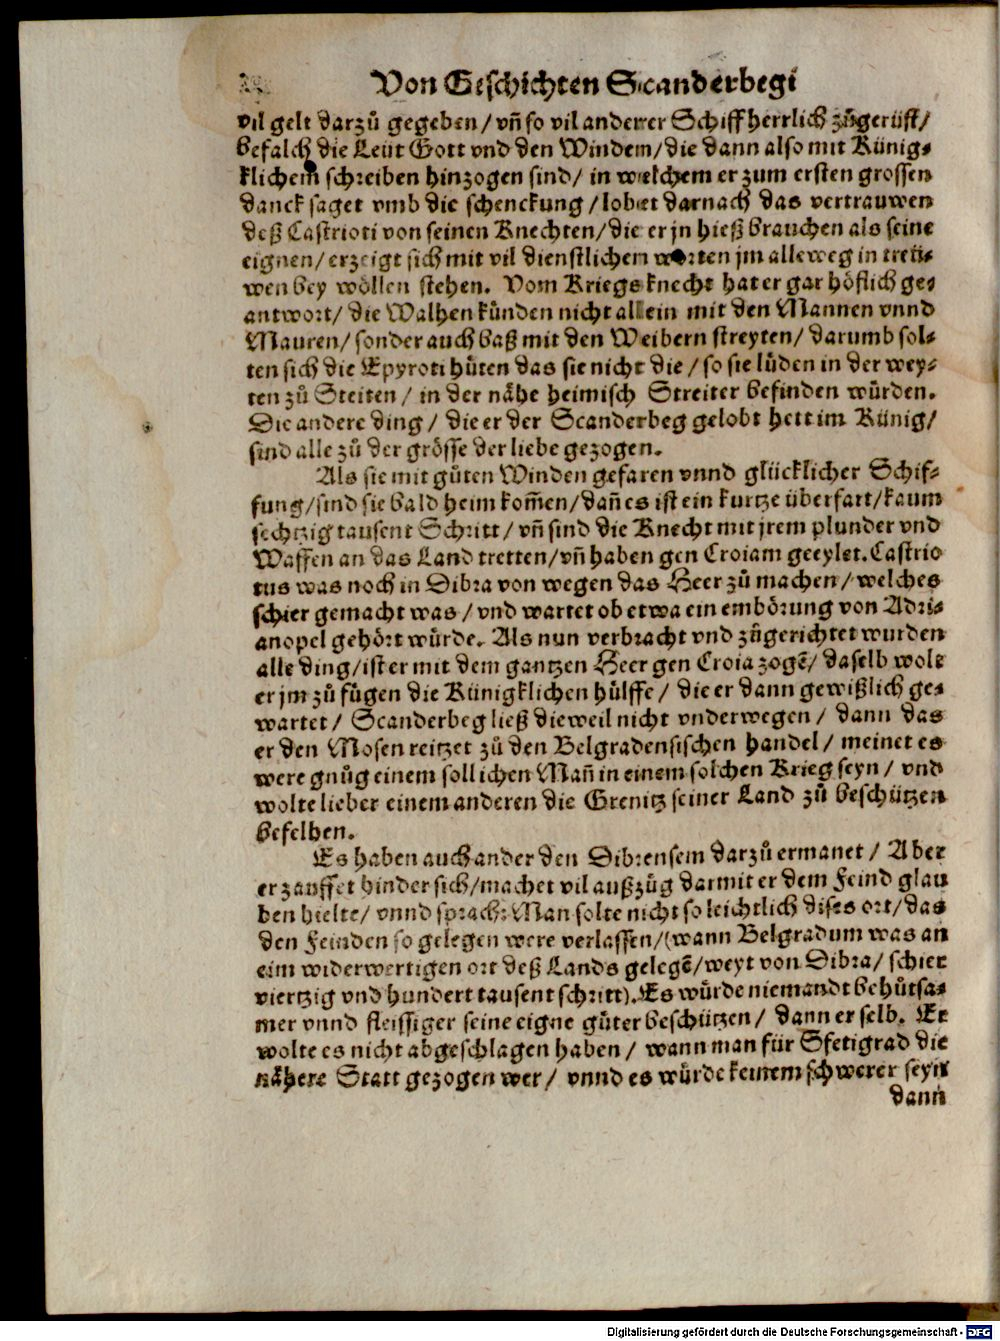 Von Geschichten Scanderbegi
vil gelt darzů gegeben / vñ so vil anderer Schiff herrlich zůgerüst /
befalch die Leüt Gott vnd den Windem / die dann also mit Künig-
klichem schreiben hinzogen sind / in welchem er zum ersten grossen
danck saget vmb die schenckung / lobet darnach das vertrauwen
deß Castrioti von seinen Knechten / die er jn hieß brauchen als seine
eignen / erzeigt sich mit vil dienstlichem worten jm alleweg in treü-
wen bey wöllen stehen. Vom Kriegsknecht hat er gar höflich ge-
antwort / die Walhen künden nicht allein mit den Mannen vnnd
Mauren / sonder auch baß mit den Weibern streyten / darumb sol-
ten sich die Epyroti hüten das sie nicht die / so sie lüden in der wey-
ten zů Steiten / in der nähe heimisch Streiter befinden würden.
Die andere ding / die er der Scanderbeg gelobt hett im Künig /
sind alle zů der grösse der liebe gezogen.
Als sie mit gůten Winden gefaren vnnd glücklicher Schif-
fung / sind sie bald heim kom̃en / dañ es ist ein kurtze überfart / kaum
sechtzig tausent Schritt / vñ sind die Knecht mit jrem plunder vnd
Waffen an das Land tretten / vñ haben gen Croiam geeylet. Castrio
tus was noch in Dibra von wegen das Heer zů machen / welches
schier gemacht was / vnd wartet ob etwa ein embörung von Adri-
anopel gehört würde. Als nun verbracht vnd zůgerichtet wurden
alle ding / ist er mit dem gantzen Heer gen Croia zogẽ / daselb wolt
er jm zů fügen die Künigklichen hülffe / die er dann gewißlich ge-
wartet / Scanderbeg ließ dieweil nicht vnderwegen / dann das
er den Mosen reitzet zů den Belgradensischen handel / meinet es
were gnůg einem sollichen Mañ in einem solchen Krieg seyn / vnd
wolte lieber einem anderen die Grenitz seiner Land zů beschützen
befelhen.
Es haben auch ander den Dibrensem darzů ermanet / Aber
er zauffet hinder sich / machet vil außzüg darmit er dem Feind glau
ben hielte / vnnd sprach: Man solte nicht so leichtlich dises ort / das
den Feinden so gelegen were verlassen / (wann Belgradum was an
eim widerwertigen ort deß Lands gelegẽ / weyt von Dibra / schier
viertzig vnd hundert tausent schritt). Es würde niemandt behůtsa-
mer vnnd fleissiger seine eigne gůter beschützen / dann er selb. Er
wolte es nicht abgeschlagen haben / wann man für Sfetigrad die
nähere Statt gezogen wer / vnnd es würde keinem schwerer seyn
dann
Digitalisierung gefördert durch die Deutsche Forschungsgemeinschaft - DFG